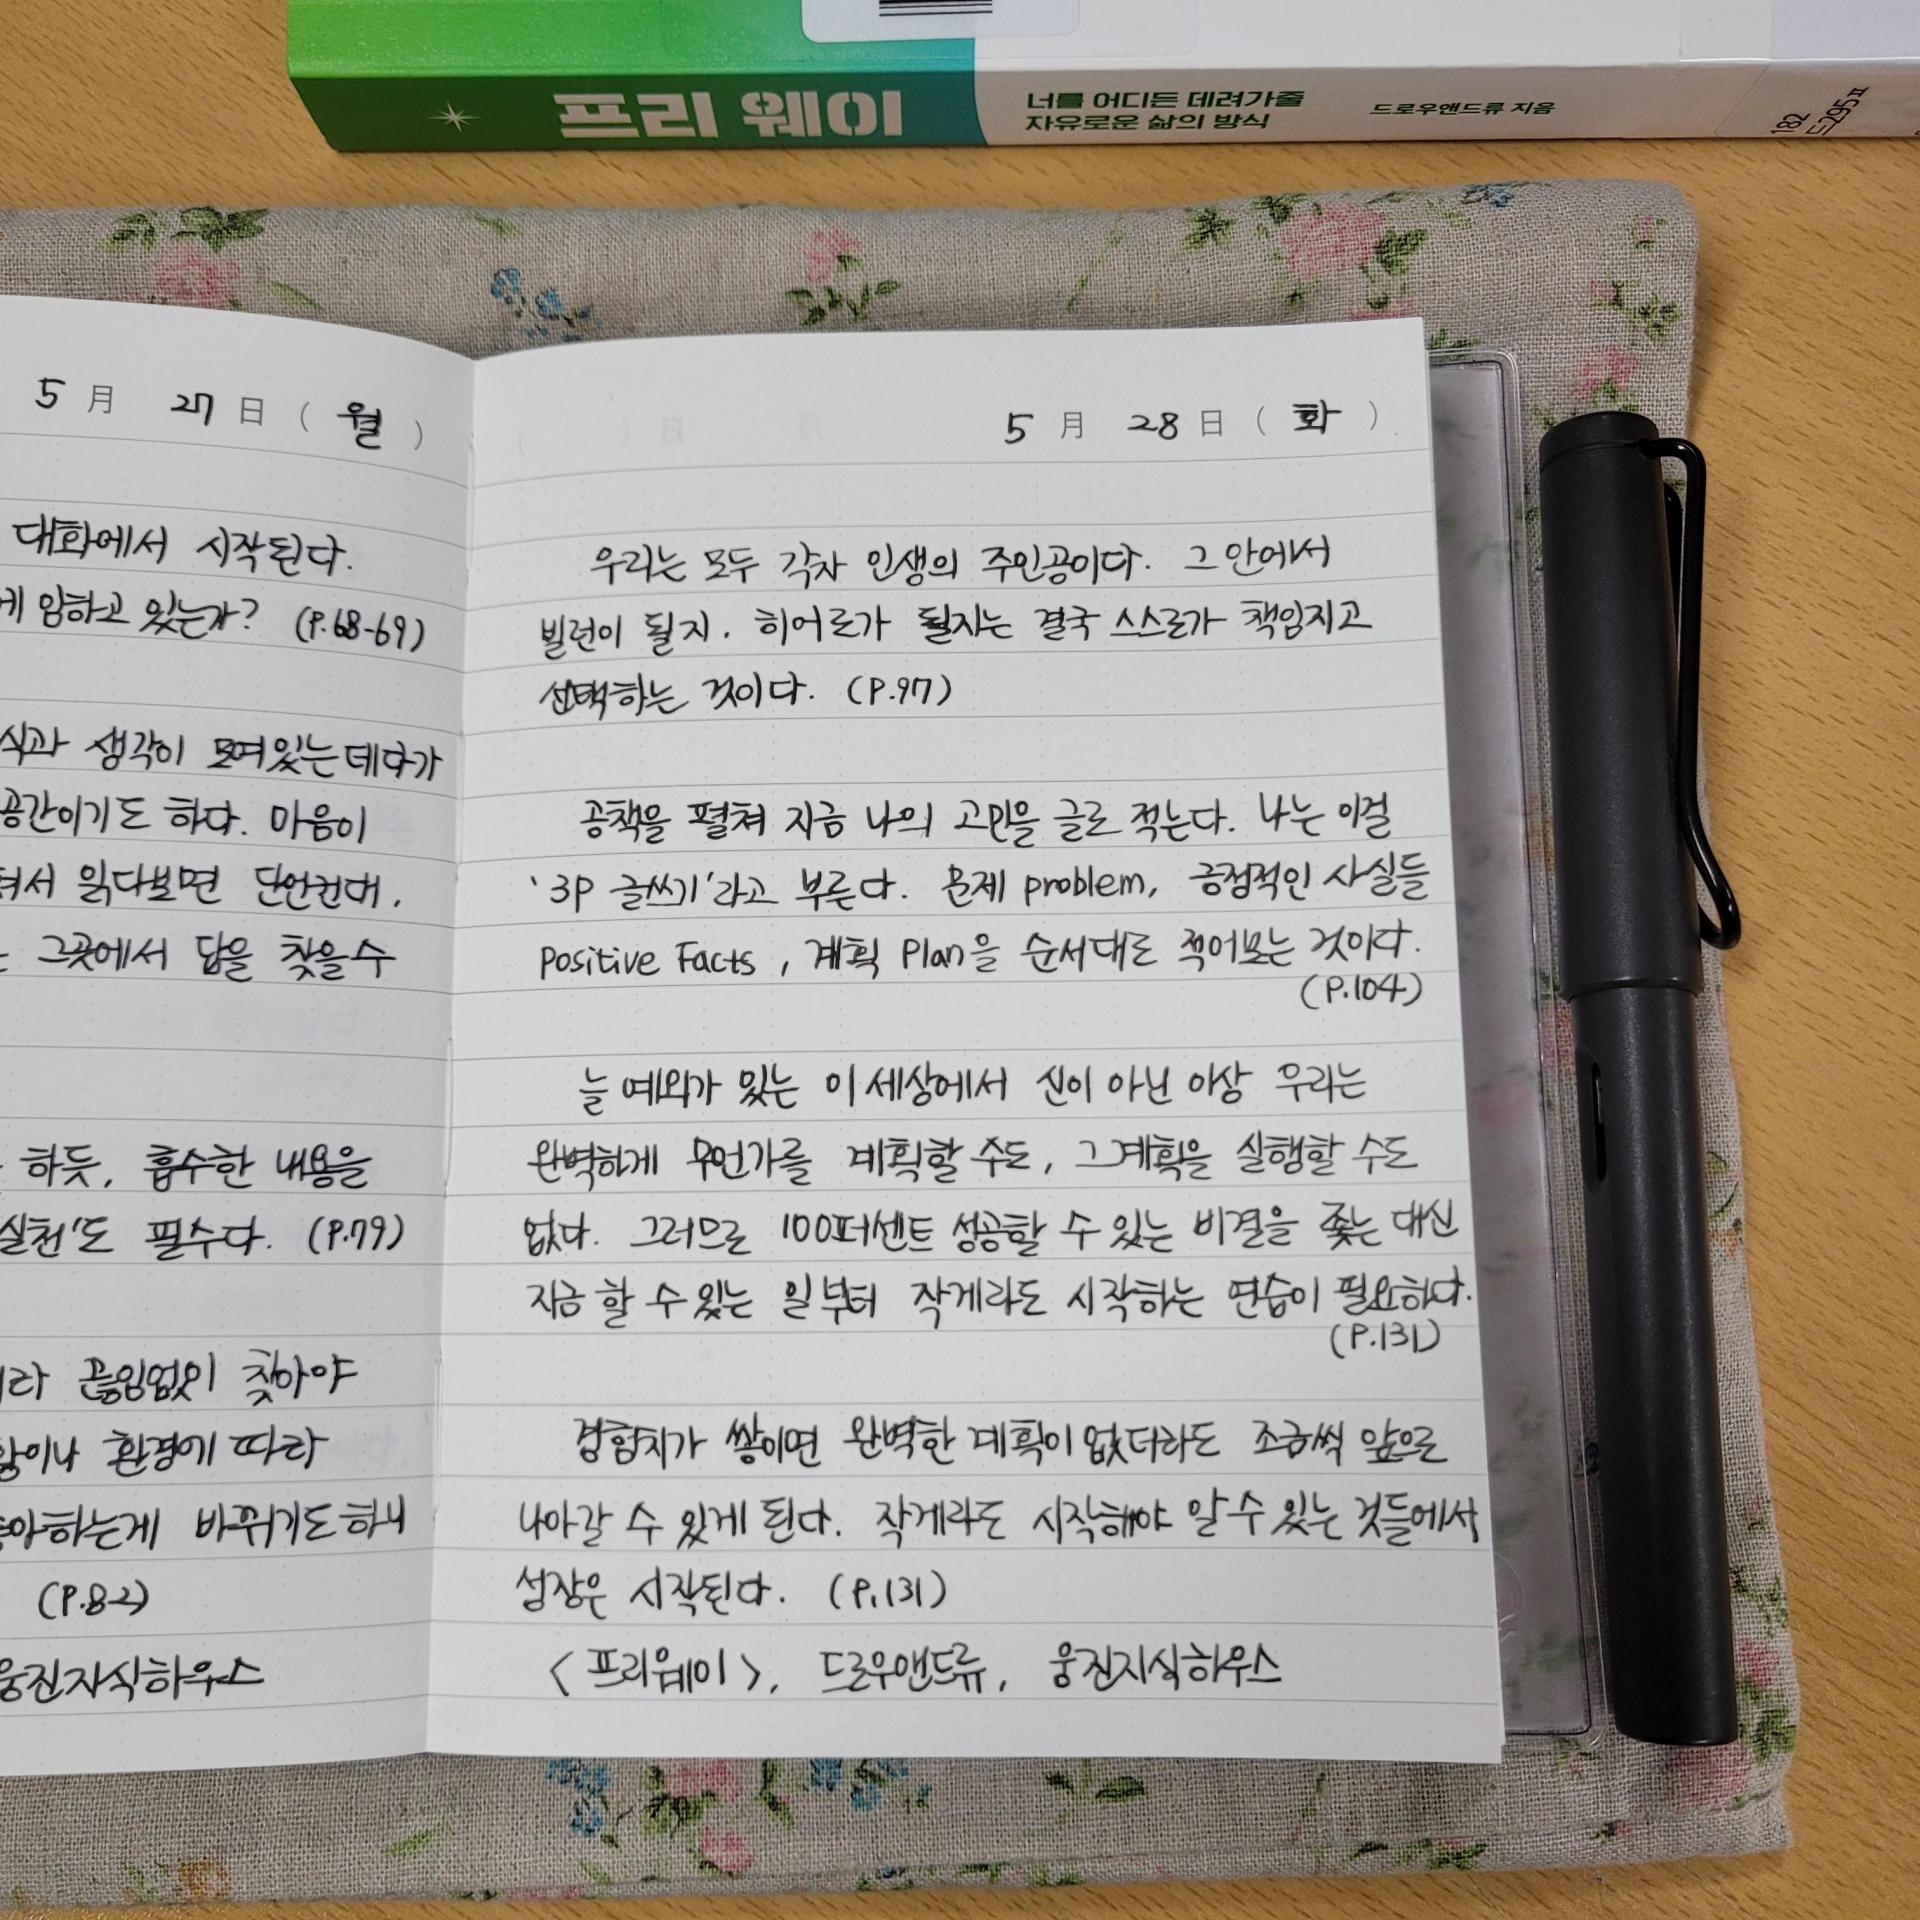 프리 웨이
너를 어디든 데려가줄
자유로운 삶의 방식
드로우앤드류 지음
182
드295ㅍ
5 月 27 日 ( 월 )
대화에서 시작된다.
임하고 있는가? (P.68-69)
생각이 모여있는데다가
공간이기도 하다. 마음이
읽다보면 단언컨대,
그곳에서 답을 찾을 수
하듯, 흡수한 내용을
실천'도 필수다. (P.79)
끊임없이 찾아야
환경에 따라
바뀌기도 하니
(P.82)
웅진지식하우스
5 月 28 日 ( 화 )
우리는 모두 각자 인생의 주인공이다. 그 안에서
빌런이 될지, 히어로가 될지는 결국 스스로가 책임지고
선택하는 것이다. (P.97)
공책을 펼쳐 지금 나의 고민을 글로 적는다. 나는 이걸
'3P 글쓰기'라고 부른다. 문제 problem, 긍정적인 사실들
Positive Facts, 계획 Plan을 순서대로 적어보는 것이다.
(P.104)
늘 예외가 있는 이 세상에서 신이 아닌 이상 우리는
완벽하게 무언가를 계획할 수도, 그 계획을 실행할 수도
없다. 그러므로 100퍼센트 성공할 수 있는 비결을 좇는 대신
지금 할 수 있는 일부터 작게라도 시작하는 연습이 필요하다.
(P.131)
경험치가 쌓이면 완벽한 계획이 없더라도 조금씩 앞으로
나아갈 수 있게 된다. 작게라도 시작해야 알 수 있는 것들에서
성장은 시작된다. (P.131)
< 프리웨이 >, 드로우앤드류, 웅진지식하우스